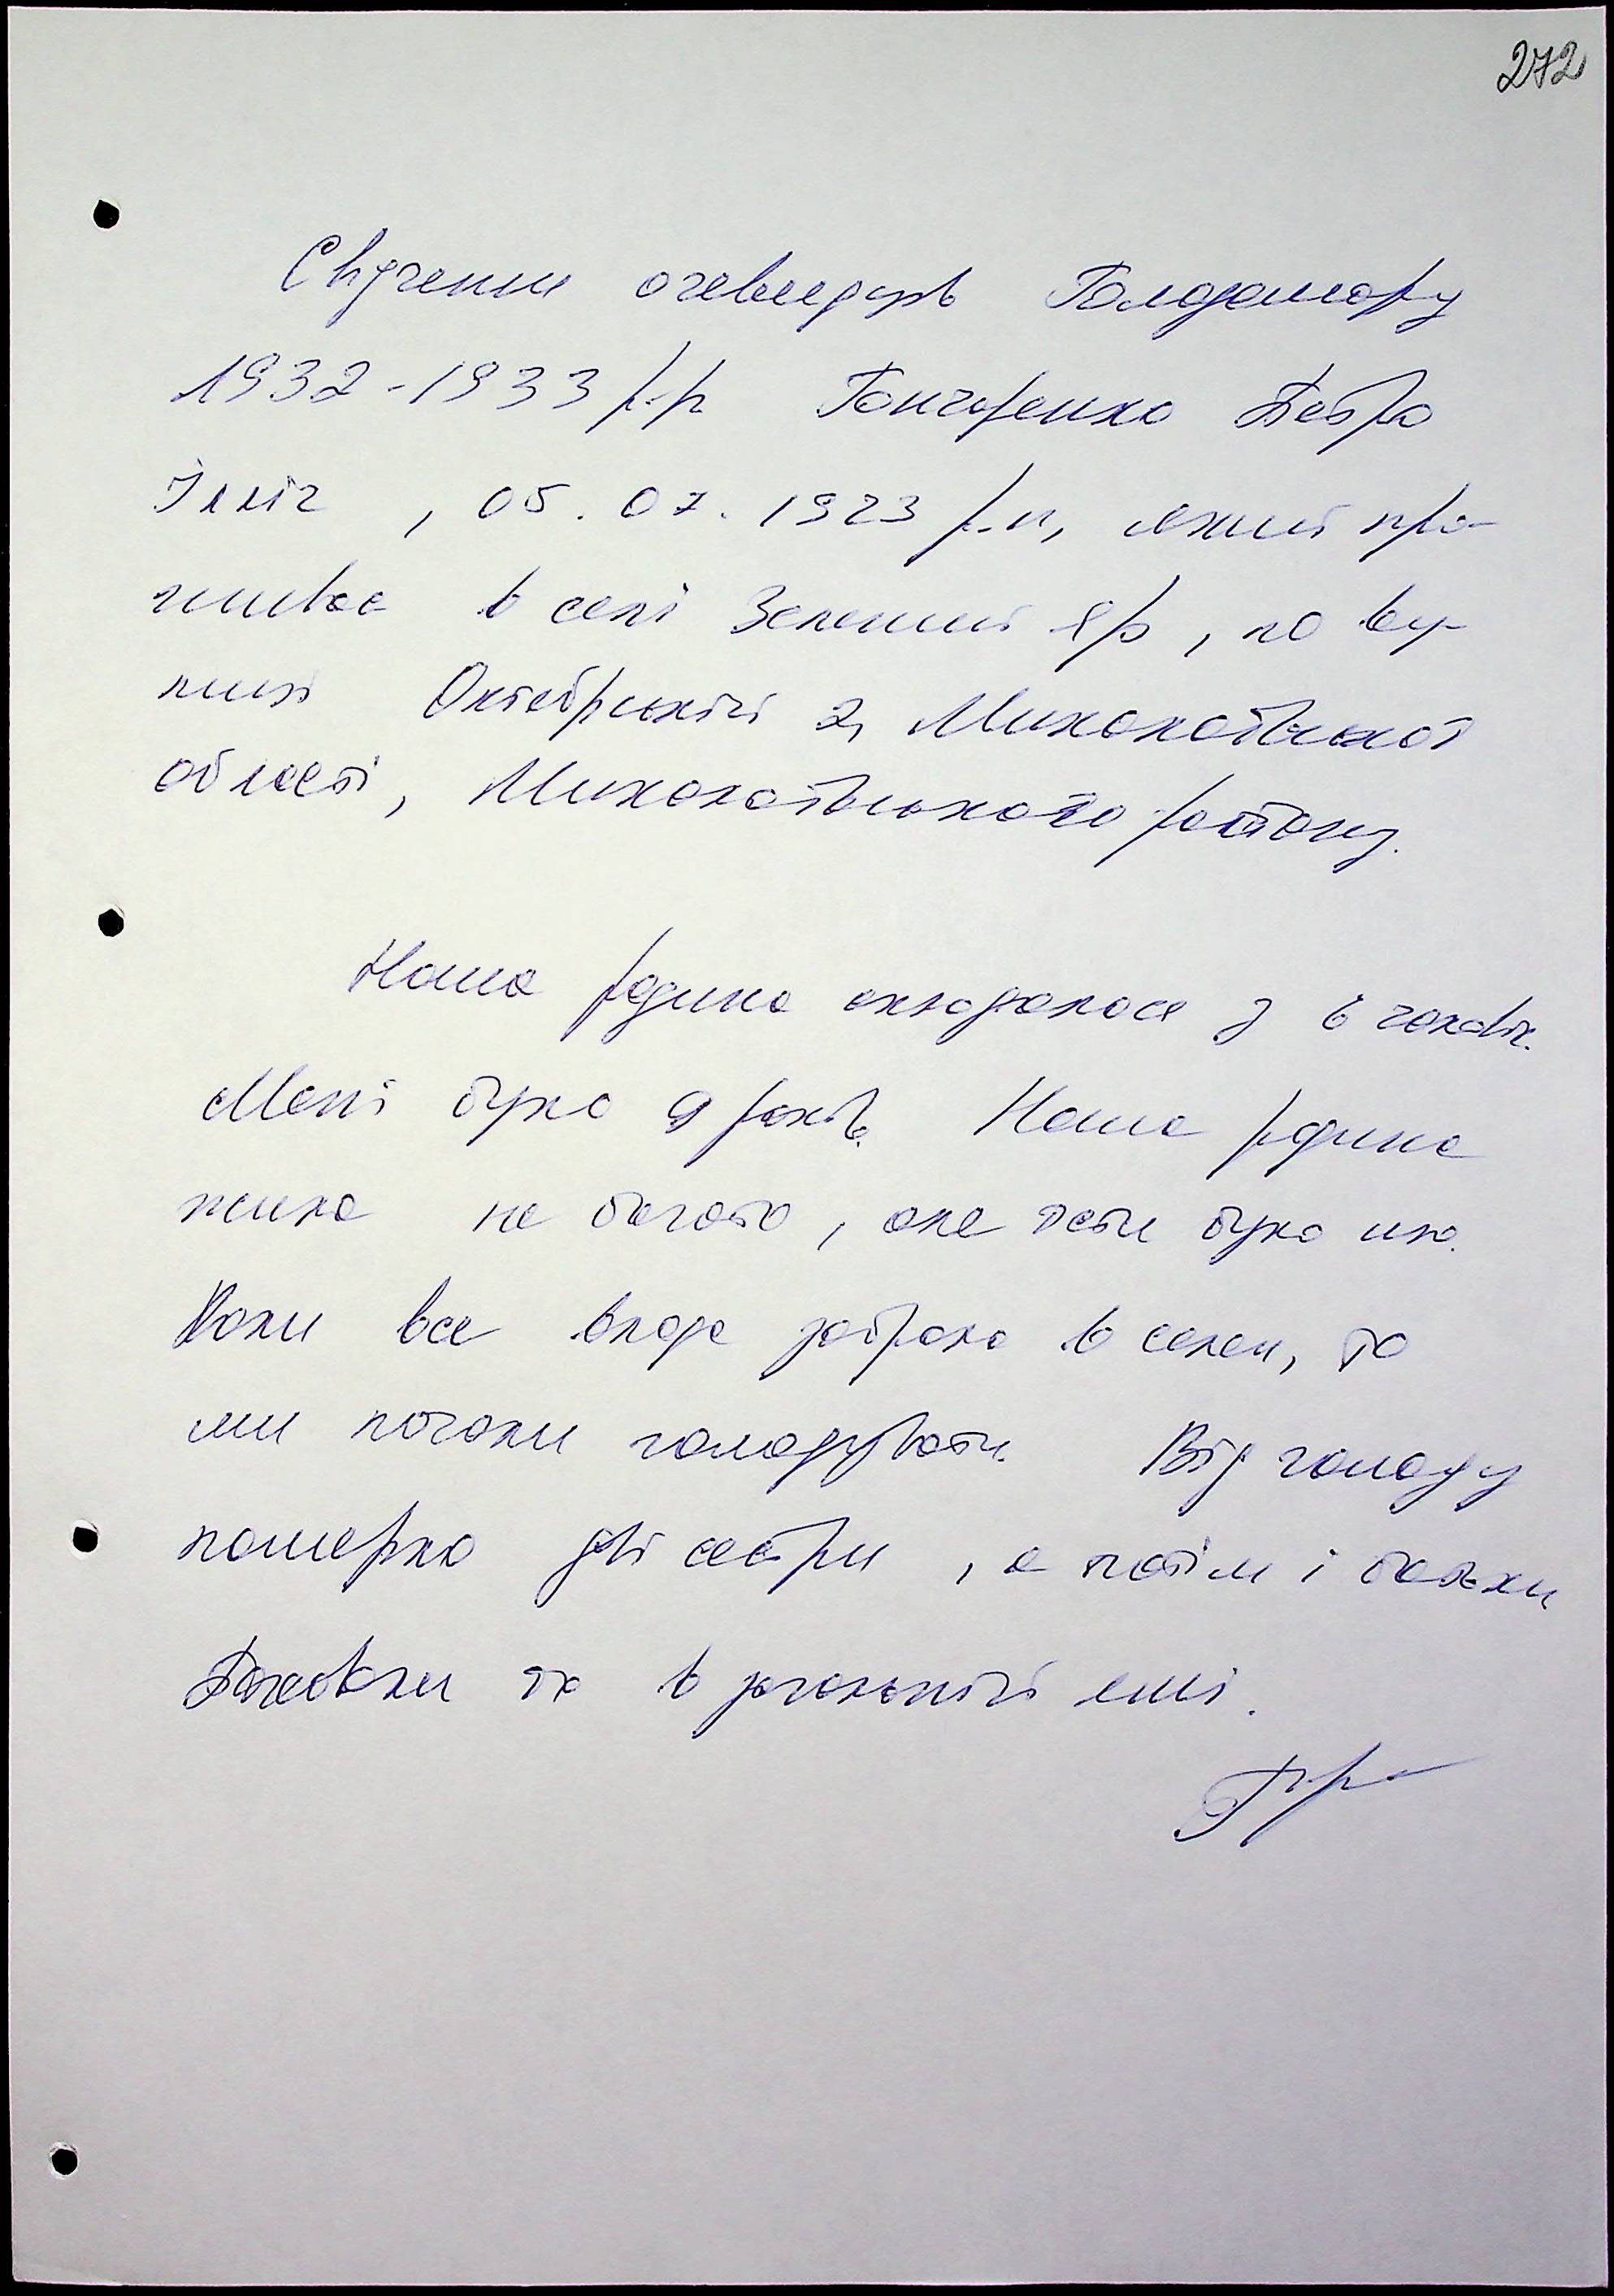 272
Свідчення очевидців Голодомору
1932-1933 р.р Гончаренко Петро
Ілліч, 05.07.1923 р.н, який про-
живає в селі Зелений Яр, по ву-
лиці Октябрській 2, Миколаївської
області, Миколаївського району.
Наша родина складалася з 6 чоловік.
Мені було 9 років. Наша родина
жила не багато, але їсти було що.
Коли все влада забрала в селян, то
ми почали голодувати. Від голоду
померло дві сестри, а потім і батьки
Поховали їх в загальній ямі.